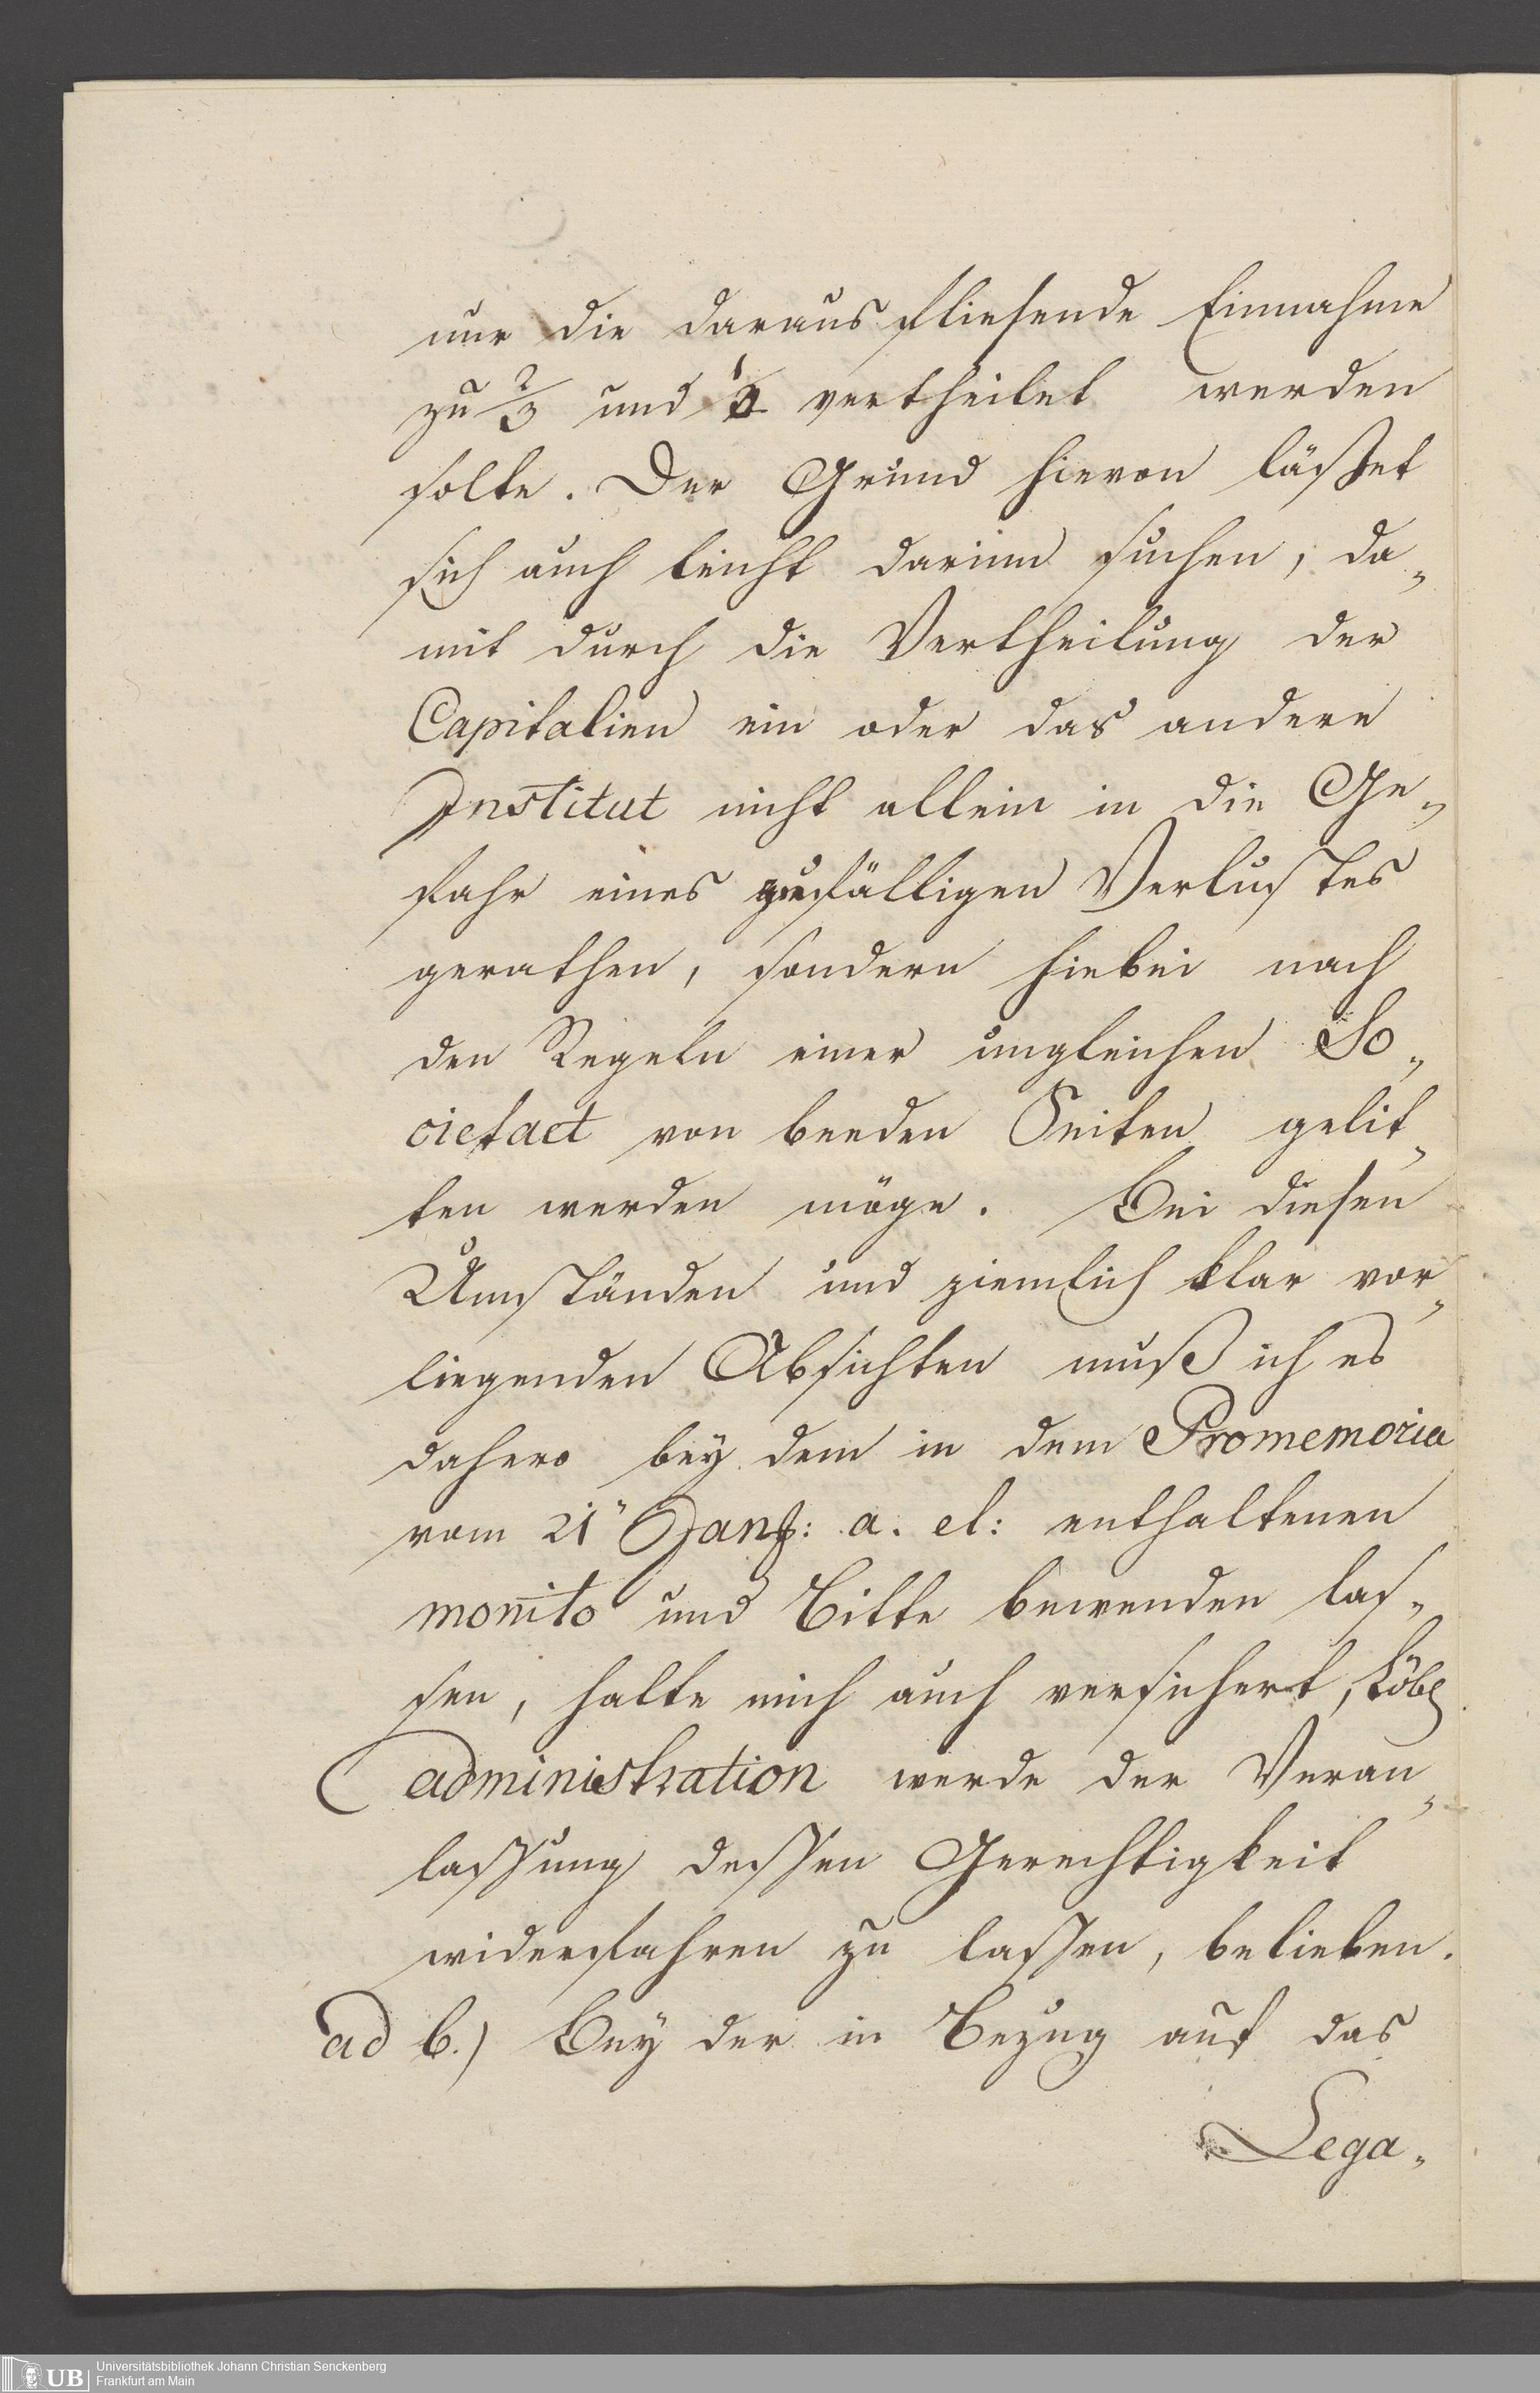 nur die daraus fliesende Einnahme
zu 2/3 und 1/3 vertheilet werden
solte. Der Grund hievon läßet
sich auch leicht darinn suchen, da„
mit durch die Vertheilung der
Capitalien ein oder das andere
Institut nicht allein in die Ge„
fahr eines zufälligen Verlustes
gerathen, sondern hiebei nach
den Regeln einer ungleichen So„
cietaet von beeden Seiten gelit„
ten werden möge. Bei diesen
Umständen und ziemlich klar vor„
liegenden Absichten muß ich es
dahero bey dem in dem Promemoria
vom 21" Jan: a. el: enthaltenen
monito und Bitte bewenden las„
sen, halte mich auch versichert, Löbl
administration werde der Veran„
lassung dessen Gerechtigkeit
widerfahren zu lassen, belieben.
ad b.) Bey der in Bezug auf das
Lega„
Universitätsbibliothek Johann Christian Senckenberg
UB Frankfurt am Main